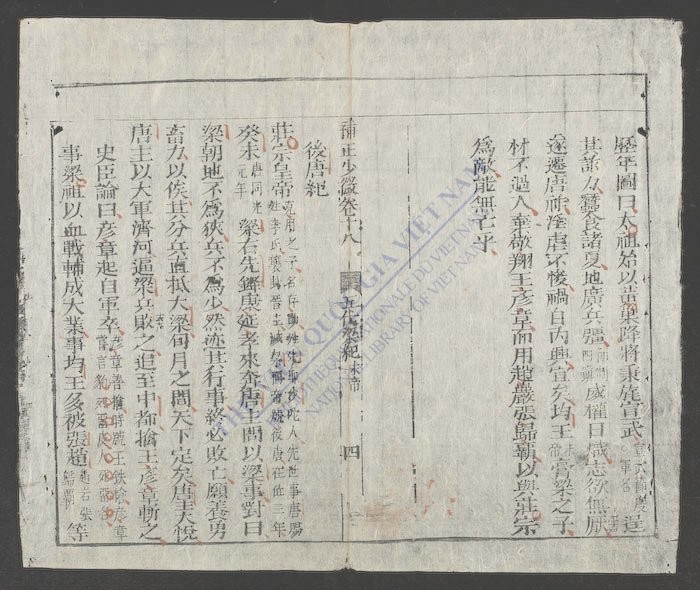 歷年圖曰太祖始以黃巢降將秉旄宣武
其詐力蠶食諸夏地廣兵彊威權日熾志欲無厭
遂遷唐祚淫虐不悛禍自內興宜矣均王富梁之子
材不過人棄敬翔王彥章而用趙嚴張歸霸以與莊宗
為敵能無亡乎
補正少微卷十八 五代梁紀 末帝 四
後唐紀
莊宗皇帝
癸未 唐同光元年 梁右先鋒康延孝來奔唐主問以梁事對曰
梁朝地不為狹兵不為少然迹其行事終必敗亡願養勇
畜力以俟其分兵直抵大梁旬月之間天下定矣唐主大悅
唐主以大軍濟河逼梁兵敗之追至中都擒王彥章斬之
史臣論曰彥章起自軍卒
事梁祖以血戰輔成大業事均王多被張趙等
THƯ VIỆN QUỐC GIA VIỆT NAM
BIBLIOTHÈQUE NATIONALE DU VIETNAM
NATIONAL LIBRARY OF VIETNAM